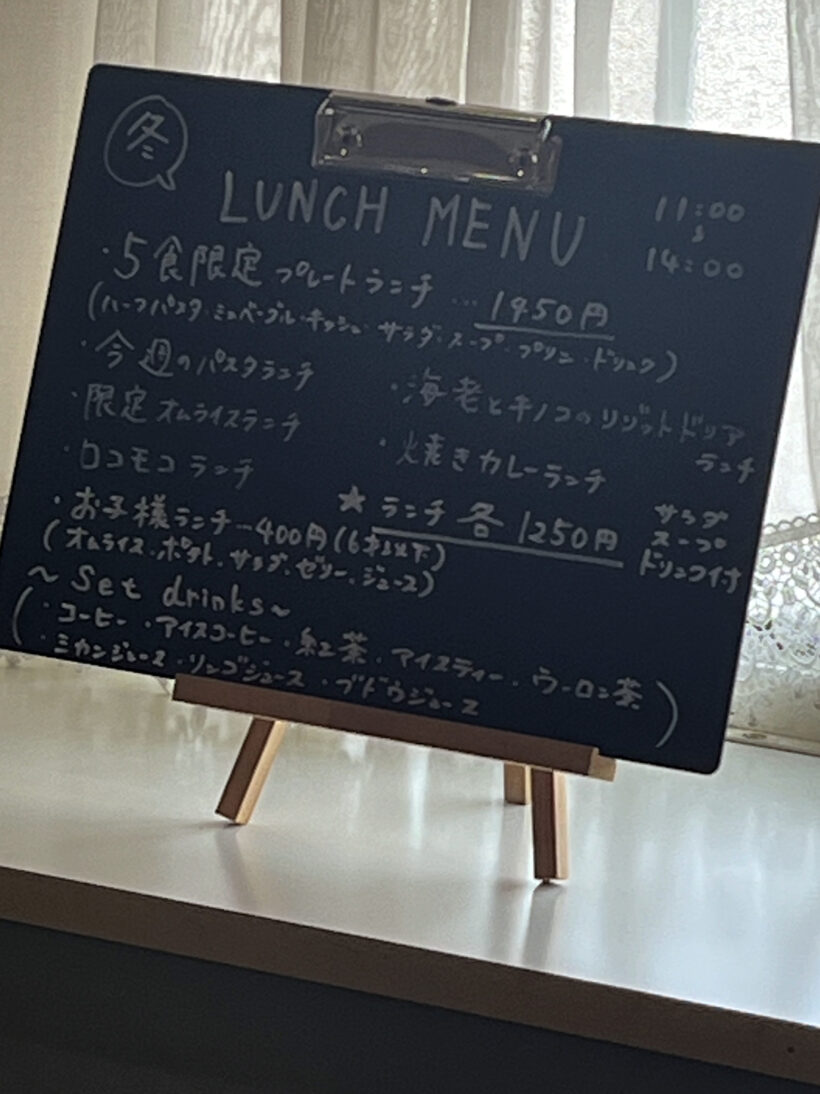 冬
LUNCH MENU
11:00
〜
14:00
・5食限定 プレートランチ … 1450円
(ハーフパスタ・ミニベーグル・キッシュ・サラダ・スープ・プリン・ドリンク)
・今週のパスタランチ
・海老とキノコのリゾットドリア
ランチ
・限定オムライスランチ
・焼きカレーランチ
・ロコモコランチ
★ランチ各1250円
サラダ
スープ
ドリンク付
・お子様ランチ…400円(6才以下)
(オムライス・ポテト・サラダ・ゼリー・ジュース)
~ Set drinks ~
(・コーヒー・アイスコーヒー・紅茶・アイスティー・ウーロン茶
・ミカンジュース・リンゴジュース・ブドウジュース)